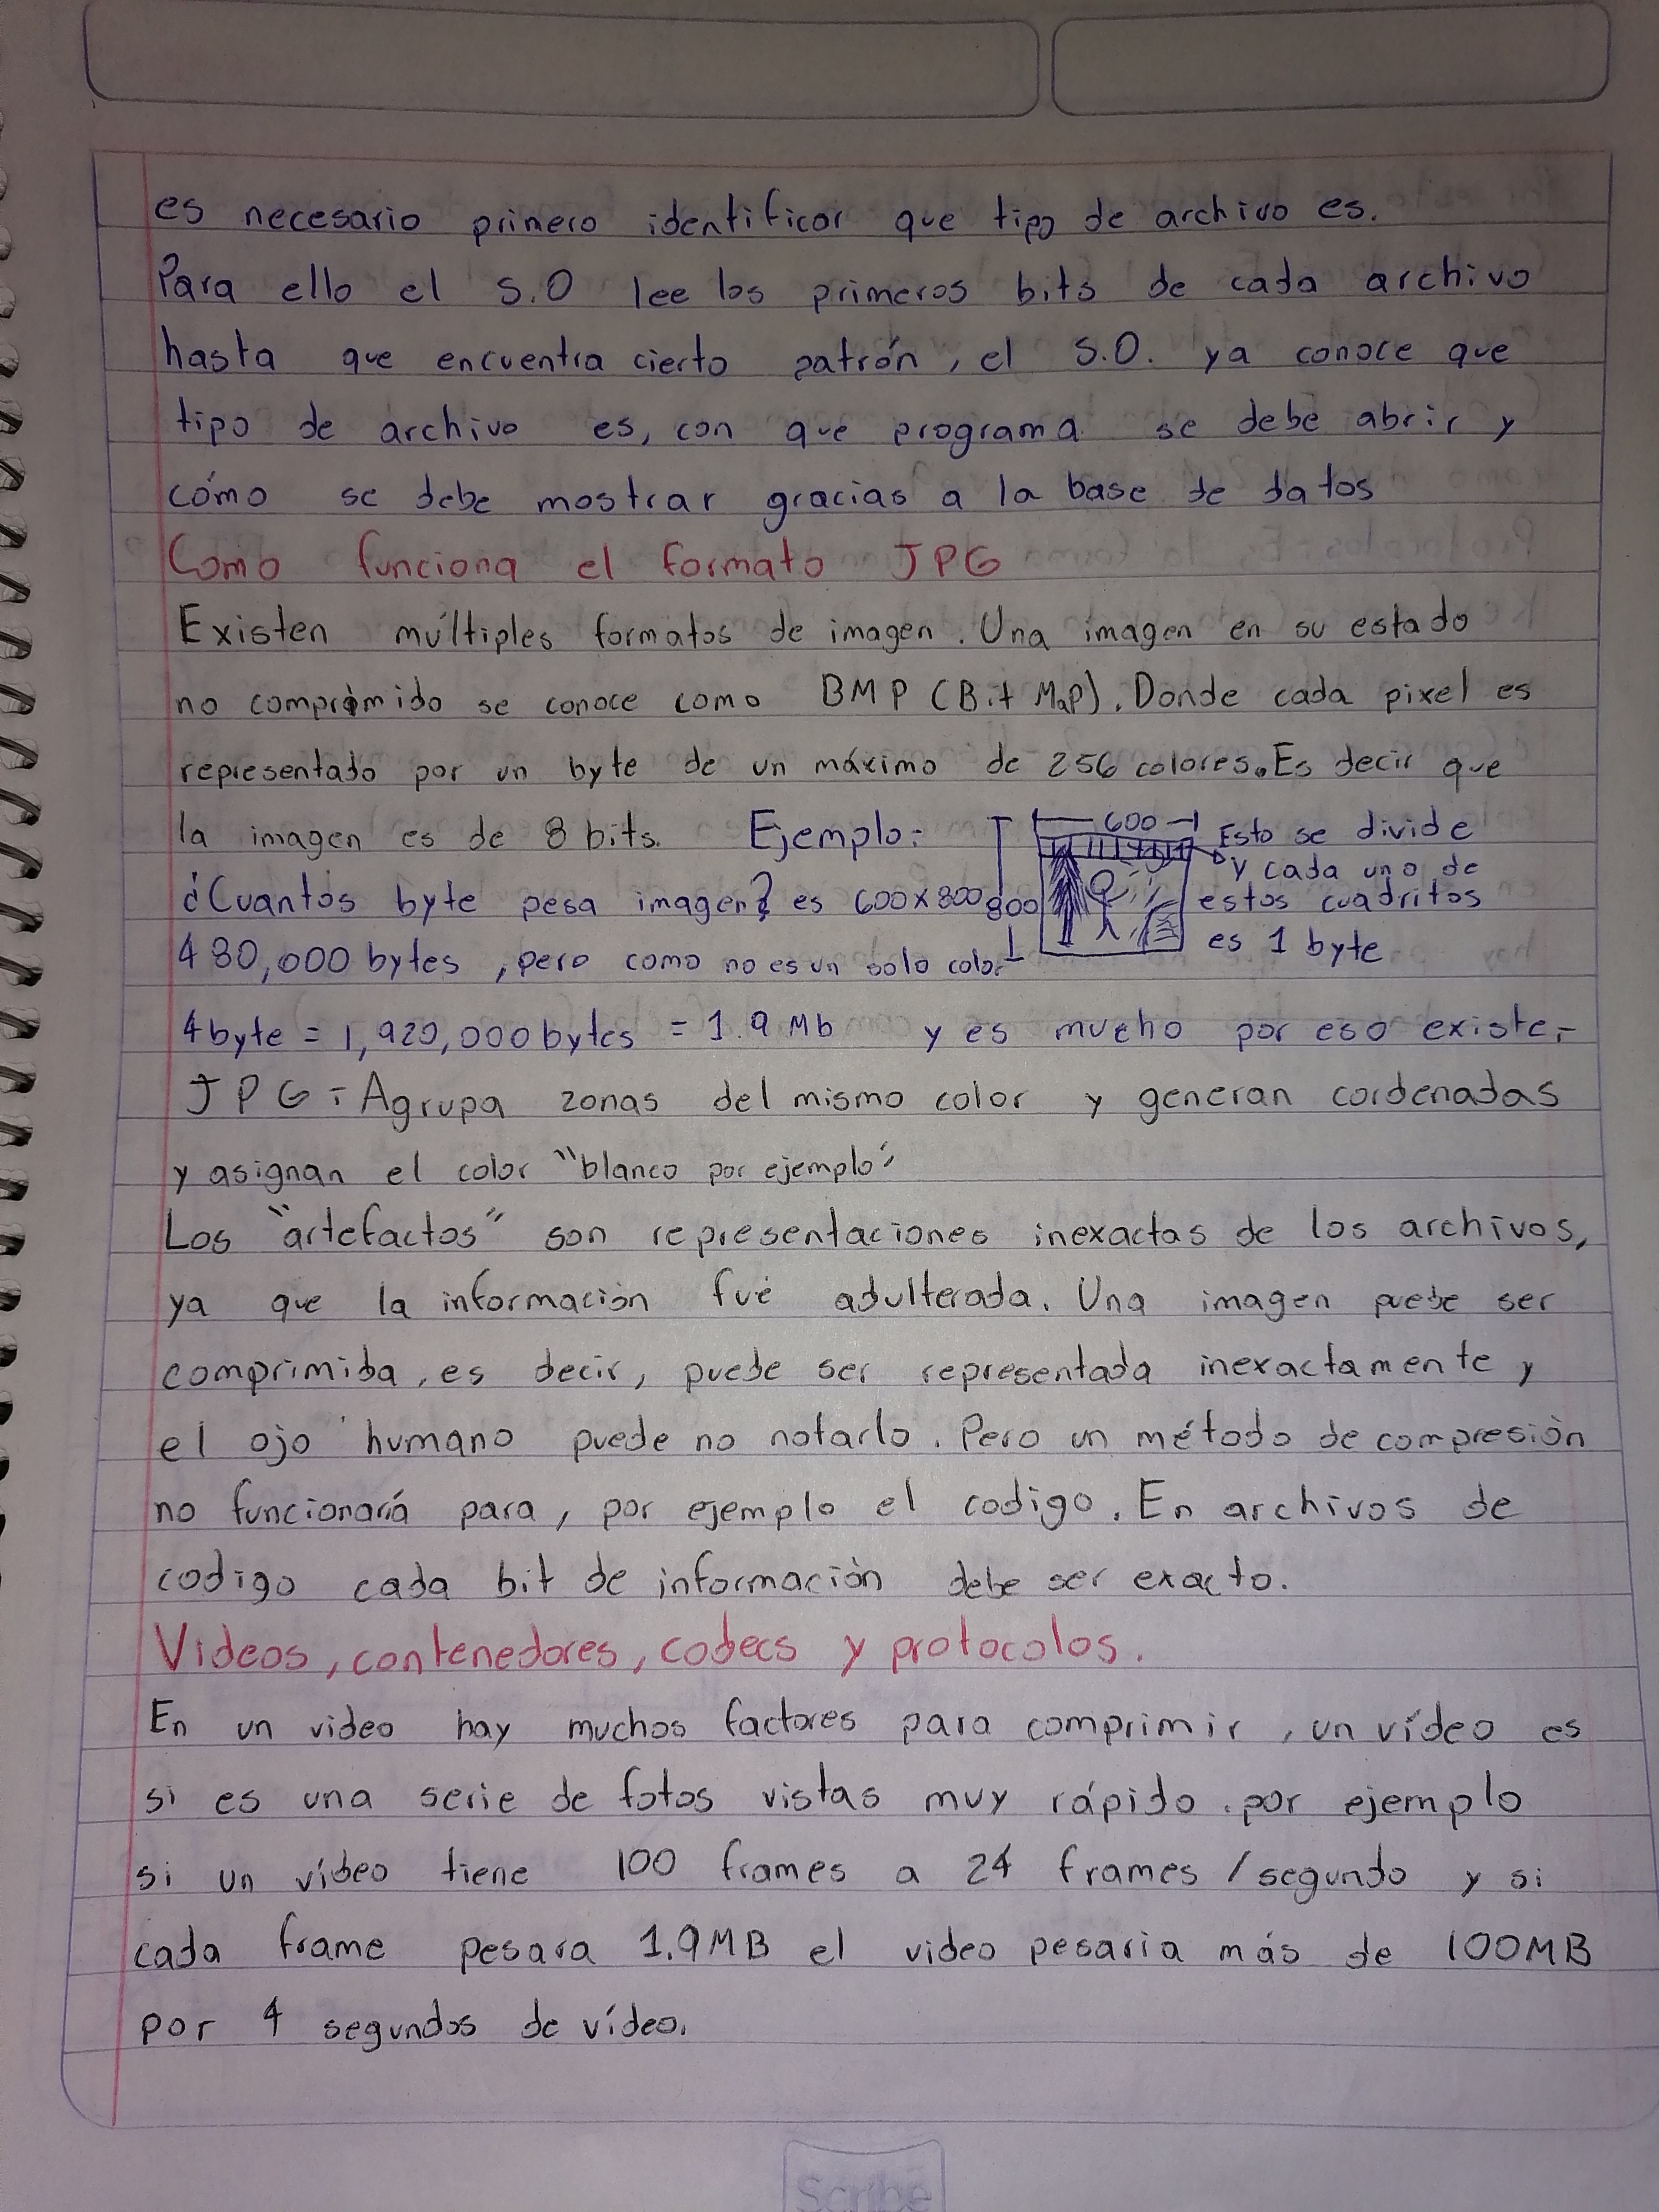 es necesario primero identificar que tipo de archivo es.
Para ello el S.O lee los primeros bits de cada archivo
hasta que encuentra cierto patrón, el S.O. ya conoce que
tipo de archivo es, con que programa se debe abrir y
cómo se debe mostrar gracias a la base de datos
Como funciona el formato JPG
Existen múltiples formatos de imagen. Una imagen en su estado
no comprimido se conoce como BMP (Bit Map). Donde cada pixel es
representado por un byte de un máximo de 256 colores. Es decir que
la imagen es de 8 bits. Ejemplo:
600
Esto se divide
y cada uno de
estos cuadritos
es 1 byte
800
¿Cuantos byte pesa imagen? es 600x800
480,000 bytes, pero como no es un solo color
4 byte = 1,920,000 bytes = 1.9 Mb y es mucho por eso existe:
JPG: Agrupa zonas del mismo color y generan cordenadas
y asignan el color "blanco por ejemplo"
Los "artefactos" son representaciones inexactas de los archivos,
ya que la información fué adulterada. Una imagen puede ser
comprimida, es decir, puede ser representada inexactamente y
el ojo humano puede no notarlo. Pero un método de compresión
no funcionaría para, por ejemplo el codigo. En archivos de
codigo cada bit de información debe ser exacto.
Videos, contenedores, codecs y protocolos.
En un video hay muchos factores para comprimir, un vídeo es
si es una serie de fotos vistas muy rápido. por ejemplo
si un vídeo tiene 100 frames a 24 frames/segundo y si
cada frame pesara 1.9MB el video pesaria más de 100MB
por 4 segundos de vídeo.
Scribe